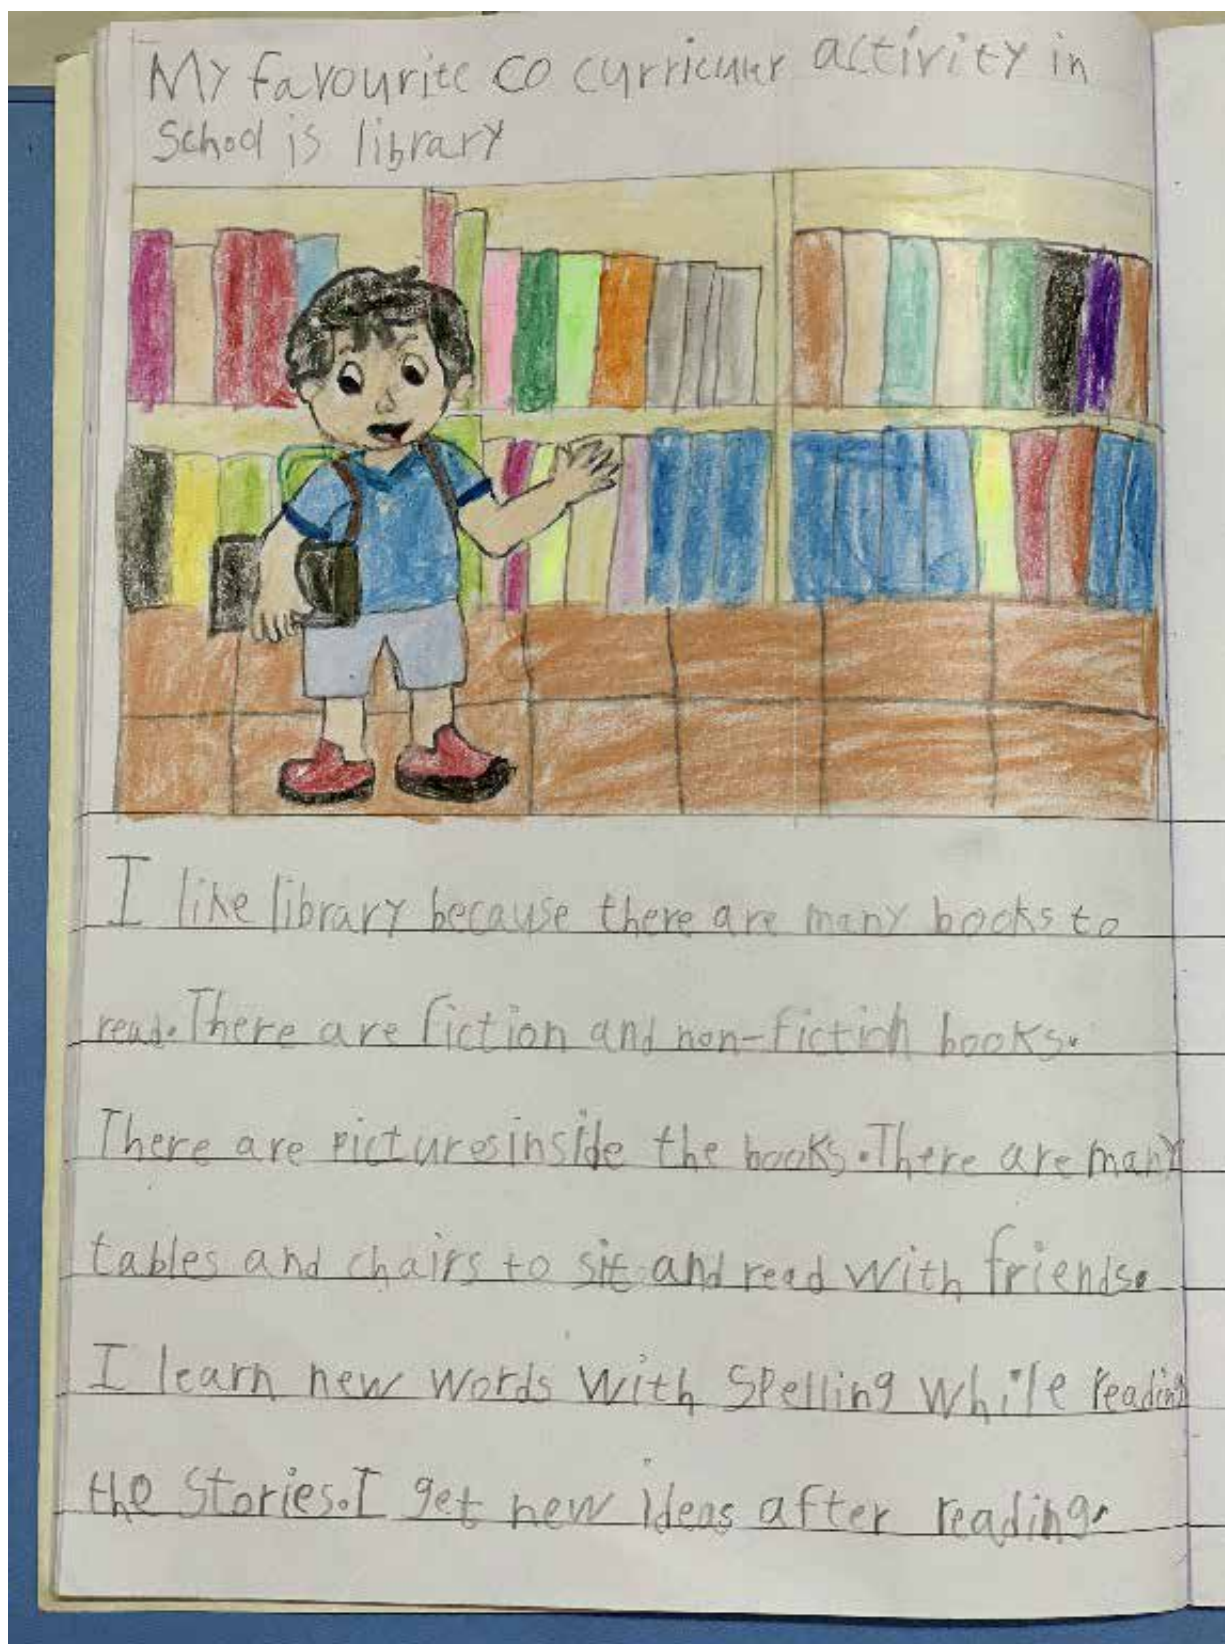 My favourite co curricular activity in
School is library
I like library because there are many books to
read. There are fiction and non-fiction books.
There are pictures inside the books. There are many
tables and chairs to sit and read with friends.
I learn new words with Spelling while reading
the Stories. I get new ideas after reading.